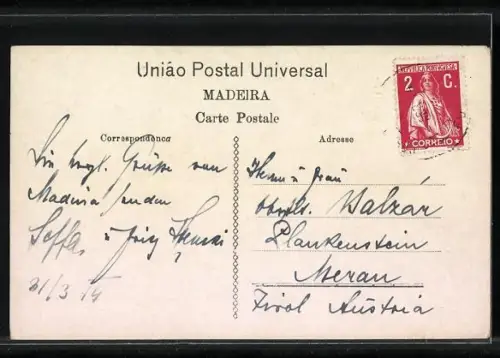 União Postal Universal
MADEIRA
Carte Postale
Correspondence
Adresse
REPUBLICA PORTUGUESA
2 C.
CORREIO
Grüße von
Madeira senden
u Fritz
31/3 14
Herrn u Frau
Balzar
Plankenstein
Meran
Tirol Austria